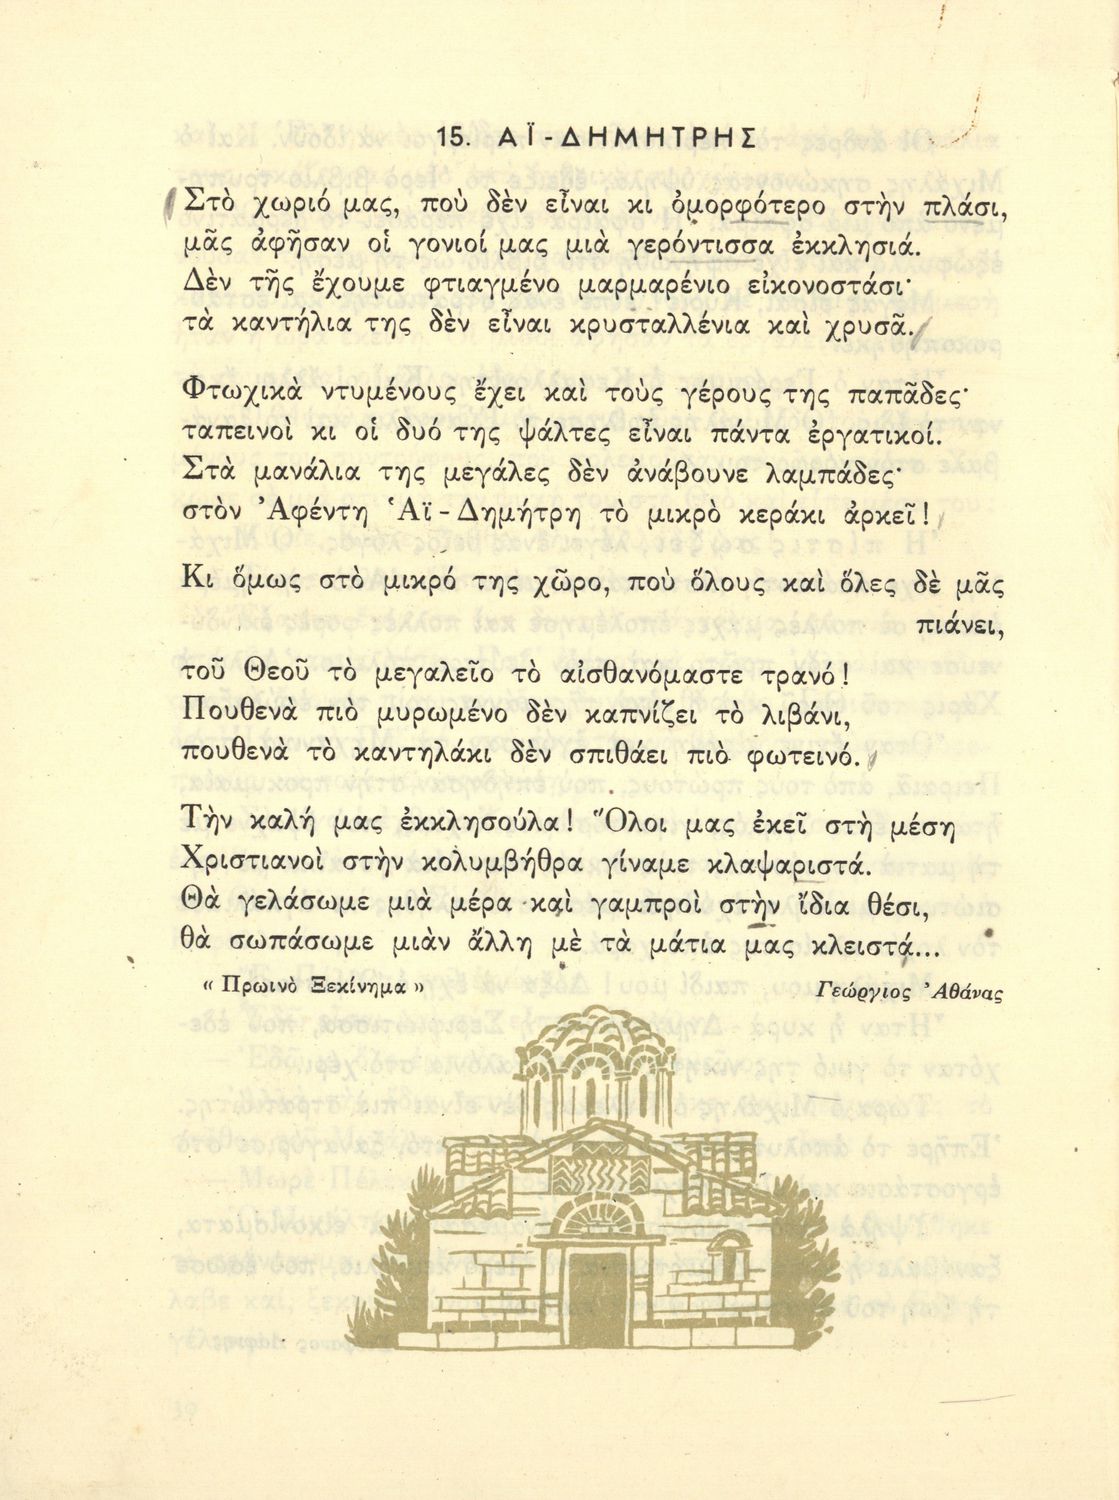 15. ΑΪ-ΔΗΜΗΤΡΗΣ
Στὸ χωριό μας, ποὺ δὲν εἶναι κι ὀμορφότερο στὴν πλάσι,
μᾶς ἀφῆσαν οἱ γονιοί μας μιὰ γερόντισσα ἐκκλησιά.
Δὲν τῆς ἔχουμε φτιαγμένο μαρμαρένιο εἰκονοστάσι·
τὰ καντήλια της δὲν εἶναι κρυσταλλένια καὶ χρυσᾶ.
Φτωχικὰ ντυμένους ἔχει καὶ τοὺς γέρους της παπᾶδες·
ταπεινοὶ κι οἱ δυό της ψάλτες εἶναι πάντα ἐργατικοί.
Στὰ μανάλια της μεγάλες δὲν ἀνάβουνε λαμπάδες·
στὸν Ἀφέντη Ἁϊ-Δημήτρη τὸ μικρὸ κεράκι ἀρκεῖ!
Κι ὅμως στὸ μικρό της χῶρο, ποὺ ὅλους καὶ ὅλες δὲ μᾶς
πιάνει,
τοῦ Θεοῦ τὸ μεγαλεῖο τὸ αἰσθανόμαστε τρανό!
Πουθενὰ πιὸ μυρωμένο δὲν καπνίζει τὸ λιβάνι,
πουθενὰ τὸ καντηλάκι δὲν σπιθάει πιὸ φωτεινό.
Τὴν καλή μας ἐκκλησούλα! Ὅλοι μας ἐκεῖ στὴ μέση
Χριστιανοὶ στὴν κολυμβήθρα γίναμε κλαψαριστά.
Θὰ γελάσωμε μιὰ μέρα καὶ γαμπροὶ στὴν ἴδια θέσι,
θὰ σωπάσωμε μιὰν ἄλλη μὲ τὰ μάτια μας κλειστά...
« Πρωινὸ Ξεκίνημα » Γεώργιος Ἀθάνας